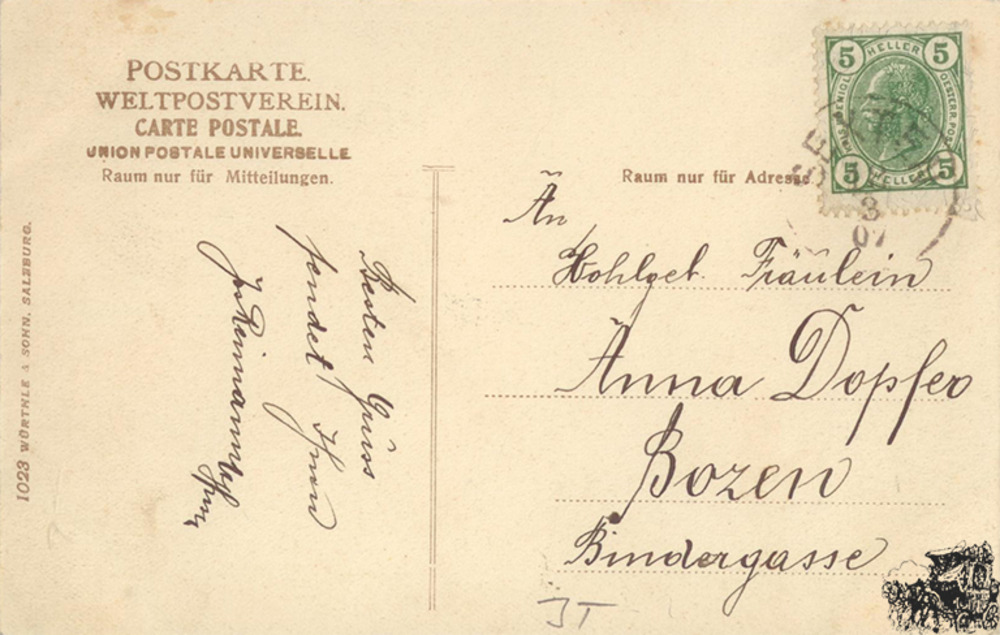 POSTKARTE.
WELTPOSTVEREIN.
CARTE POSTALE.
UNION POSTALE UNIVERSELLE
Raum nur für Mitteilungen.
Besten Gruss
sendet Ihnen
1023 WÜRTHLE & SOHN, SALZBURG.
5 HELLER 5
5 HELLER 5
3
07
Raum nur für Adresse
An
Wohlgeb. Fräulein
Anna Dopfer
Bozen
Bindergasse
JT